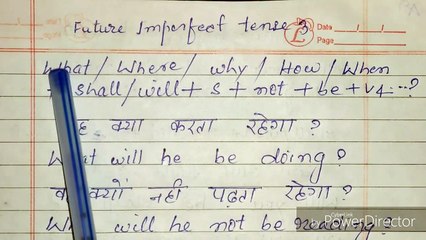 Future Imperfect tense 3
Date
Page
What / Where / why / How / When
+ shall/will + S + not + be + V4 ...?
वह क्या करता रहेगा ?
What will he be doing ?
वह क्यों नही पढ़ता रहेगा ?
Why will he not be reading ?
PowerDirector